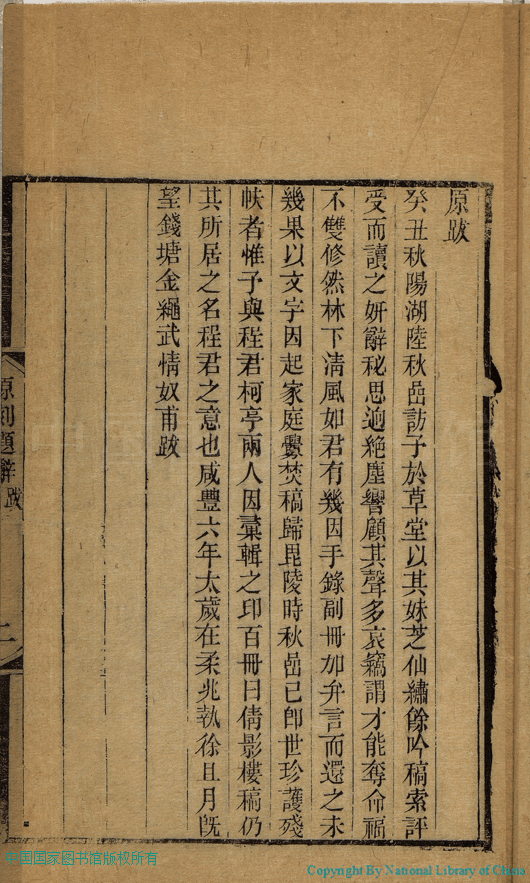 原跋
癸丑秋陽湖陸秋嵒訪予於草堂以其妹芝仙繡餘吟稿索評
受而讀之妍辭秘思逈絕塵響顧其聲多哀竊謂才能奪命福
不雙修然林下清風如君有幾因手錄副冊加弁言而還之未
幾果以文字因起家庭釁焚稿歸毘陵時秋嵒已卽世珍護殘
帙者惟予與程君柯亭兩人因彙輯之印百冊曰倩影樓稿仍
其所居之名程君之意也咸豐六年太歲在柔兆執徐且月旣
望錢塘金繩武情奴甫跋
原刻題辭 跋
二
中国国家图书馆版权所有
Copyright By National Library of China